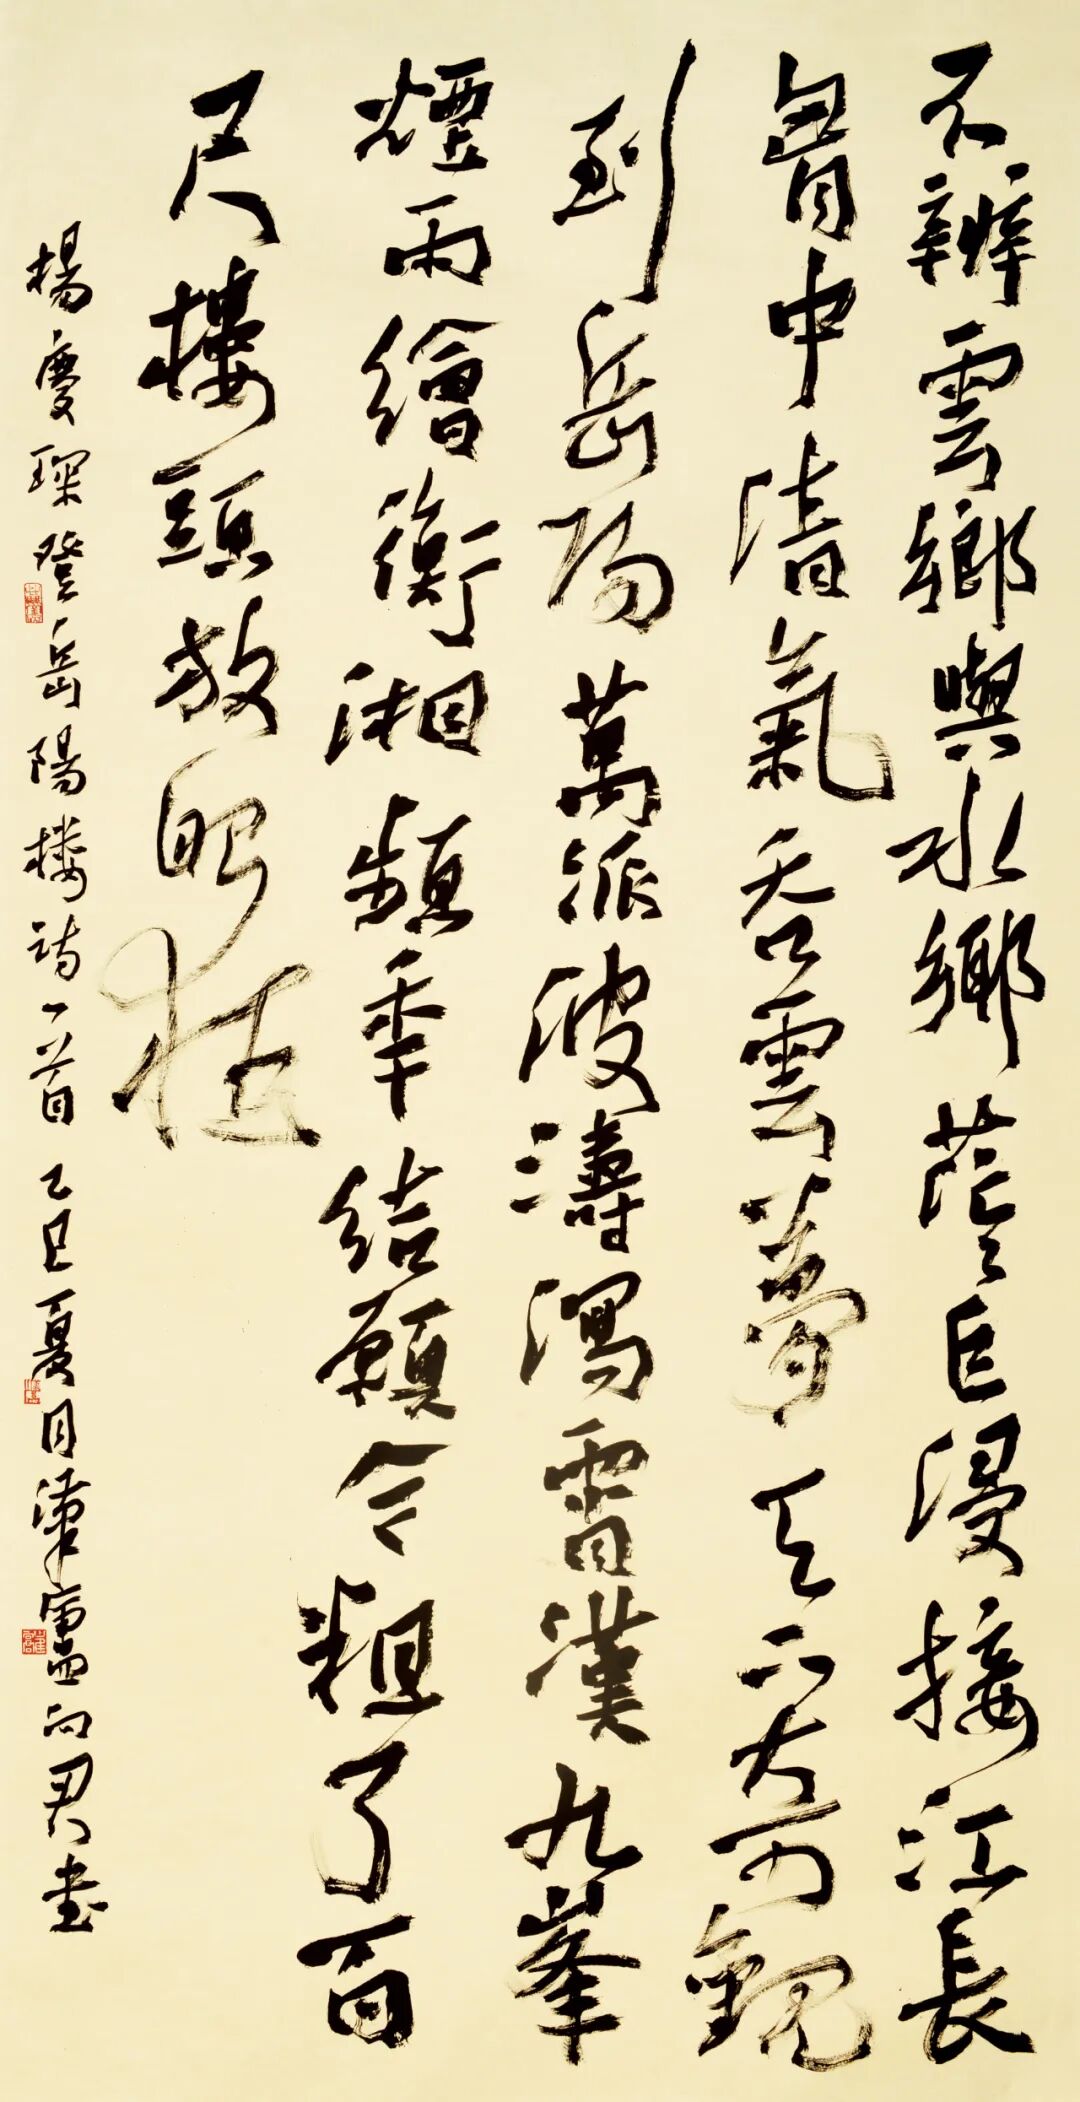 不辨雲鄉與水鄉茫茫巨浸接江長
胷中清氣吞雲夢天下奇觀
到岳陽萬派波濤瀉霄漢九峯
煙雨繪衡湘頻年結願今粗了百
尺樓頭放眼狂
楊慶琛登岳陽樓詩一首乙巳夏月漢廬向君書